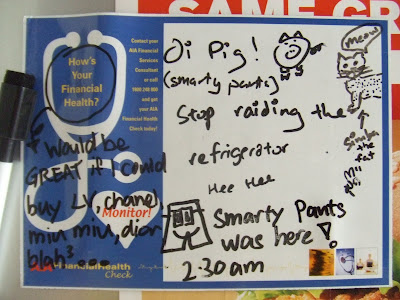 SAME GR
How's
Your
Financial
Health?
Contact your
AIA Financial
Services
Consultant
or call
1900 248 000
and get
your AIA
Financial Health
Check today!
Oi Pig!
(smarty pants)
Stop raiding the
refrigerator
Hee Hee
Smarty Pants
was here!
2:30am
meow
Simba
the
fat
would be
GREAT if I could
buy LV, chanel,
miu miu, dior
blah³...
Monitor!
Financial Health
Check